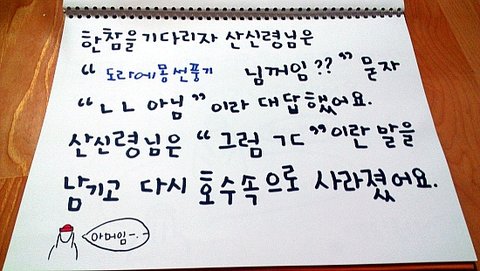 한참을기다리자 산신령님은
“도라에몽선풍기 님꺼임??” 묻자
“ㄴㄴ 아님” 이라 대답했어요.
산신령님은 “그럼 ㄱㄷ” 이란 말을
남기고 다시 호수속으로 사라졌어요.
아머임-.-